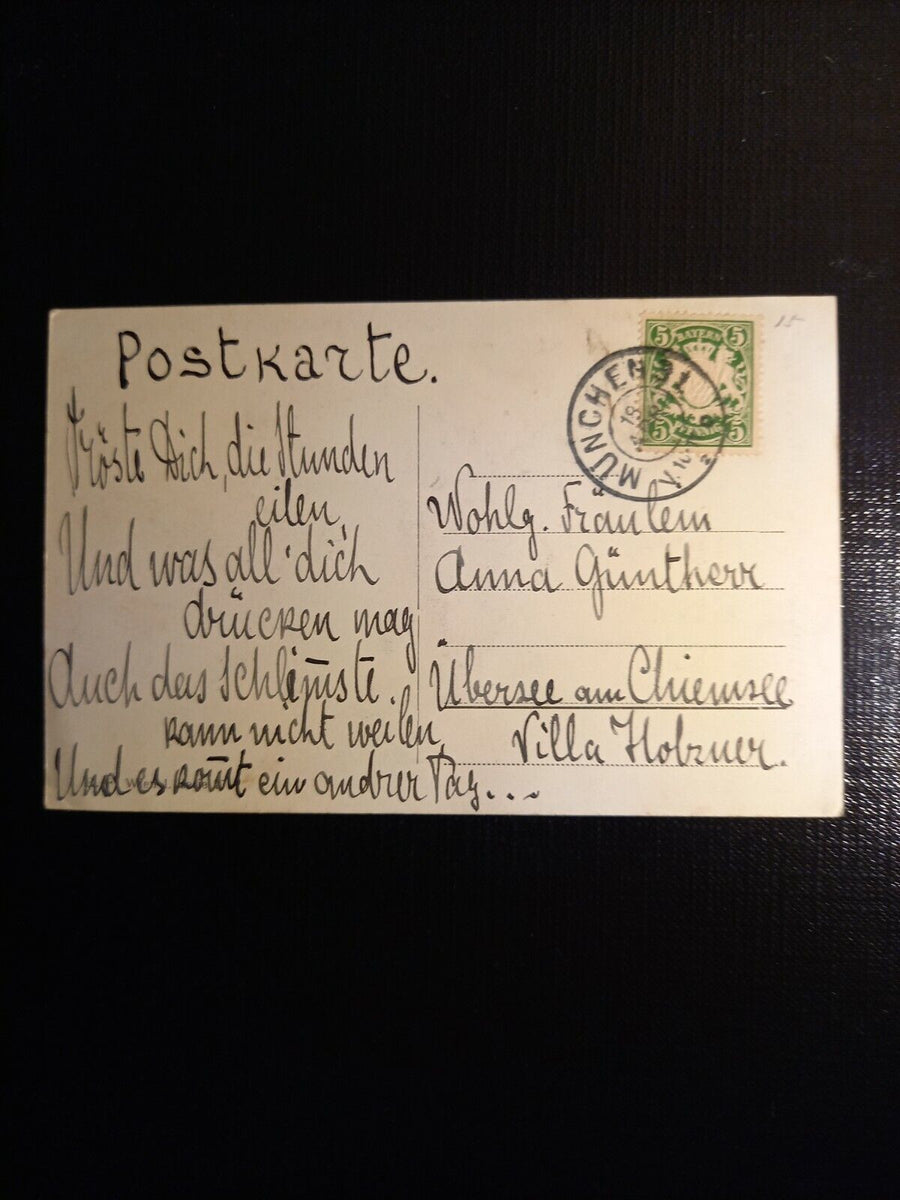 Postkarte.
Tröste Dich, die Stunden
eilen,
Und was all' dich
drücken mag
Auch das Schlim̅ste
kann nicht weilen,
Und es kom̅t ein andrer Tag...
Wohlg. Fräulein
Anna Güntherr
Übersee am Chiemsee
Villa Holzner.
5 BAYERN 5
5 5
MÜNCHEN 31
15